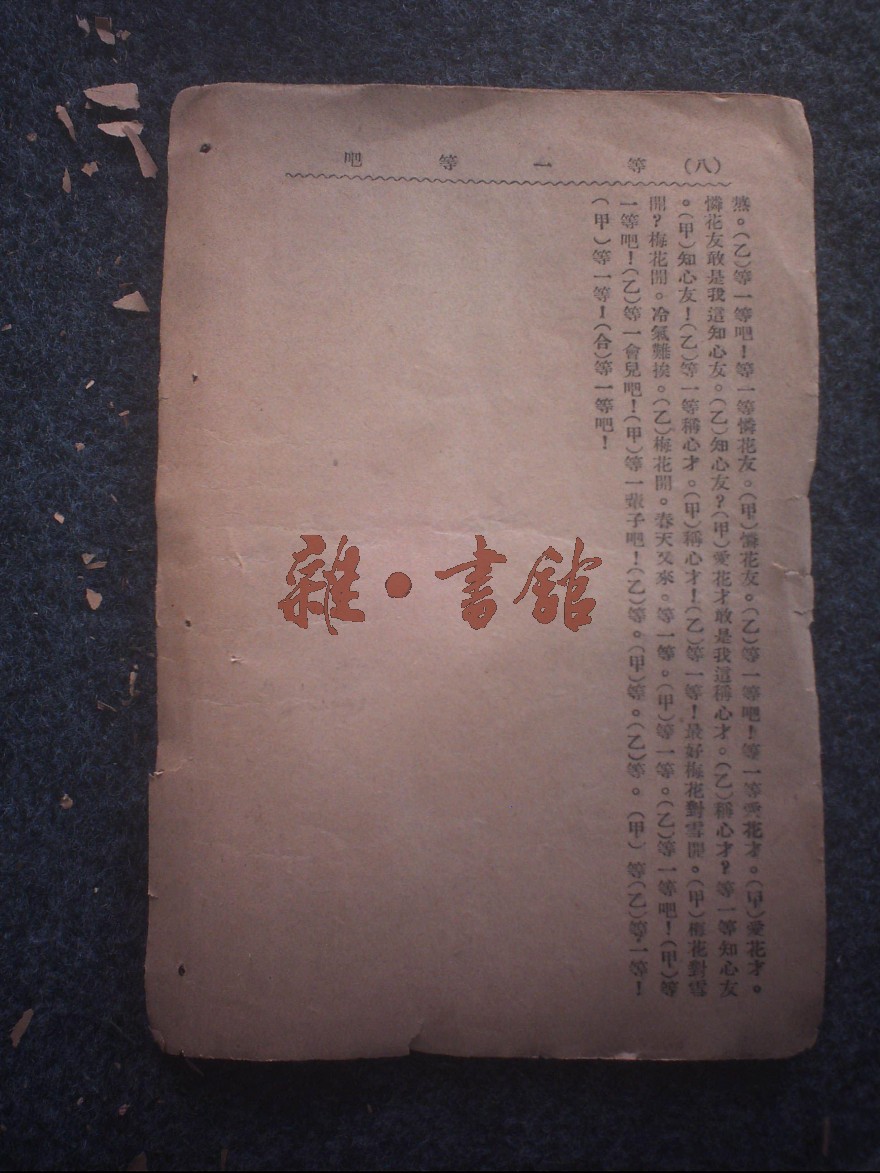 （八） 等一等吧
燕。（乙）等一等吧！等一等憐花友。（甲）憐花友。（乙）等一等吧！等一等愛花才。（甲）愛花才。
憐花友敢是我這知心友。（乙）知心友？（甲）愛花才敢是我這稱心才。（乙）稱心才？等一等知心友
。（甲）知心友！（乙）等一等稱心才。（甲）稱心才！（乙）等一等！最好梅花對雪開。（甲）梅花對雪
開？梅花開。冷氣難挨。（乙）梅花開。春天又來。等一等。（甲）等一等。（乙）等一等吧！（甲）等
一等吧！（乙）等一會兒吧！（甲）等一輩子吧！（乙）等。（甲）等。（乙）等。（甲）等（乙）等一等！
（甲）等一等！（合）等一等吧！
雜·書館